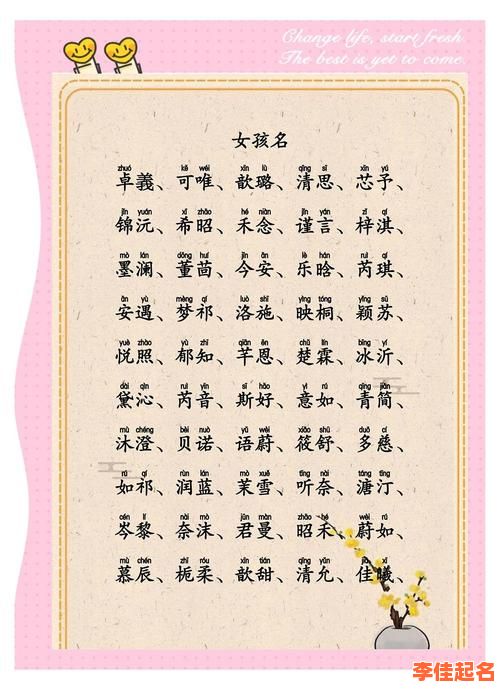 Change life, start fresh
The best is yet to come.
女孩名
zhuó kě wéi xīn lù qīng sī xīn yú
卓義、可唯、歆璐、清思、芯予、
jǐn yuán xī zhāo hé niàn jǐn yán zǐ qí
锦沅、希昭、禾念、谨言、梓淇、
mò lán dǒng huí jīn ān lè hán ruì qí
墨澜、董茴、今安、乐晗、芮琪、
ān yù mèng qí luò shī yìng tóng yǐng sū
安遇、梦祁、洛施、映桐、颖苏、
yuè zhào yù zhī qiān ēn chǔ lín bīng yí
悦照、郁知、芊恩、楚霖、冰沂、
dài qìn ruì yīn sī hǎo yì rú qīng jiǎn
黛沁、芮音、斯好、意如、青简、
mù chéng bèi nuò yǔ wèi xiǎo shū duō cí
沐澄、贝诺、语蔚、筱舒、多慈、
rú qí rùn lán mò xuě tīng nài táng tīng
如祁、润蓝、茉雪、听奈、溏汀、
cén lí nài mò jūn màn zhāo hé wèi rú
岑黎、奈沫、君曼、昭禾、蔚如、
mù chén zhī róu xīn tián qīng yǔn jiā xī
慕辰、栀柔、歆甜、清允、佳曦、
李佳起名